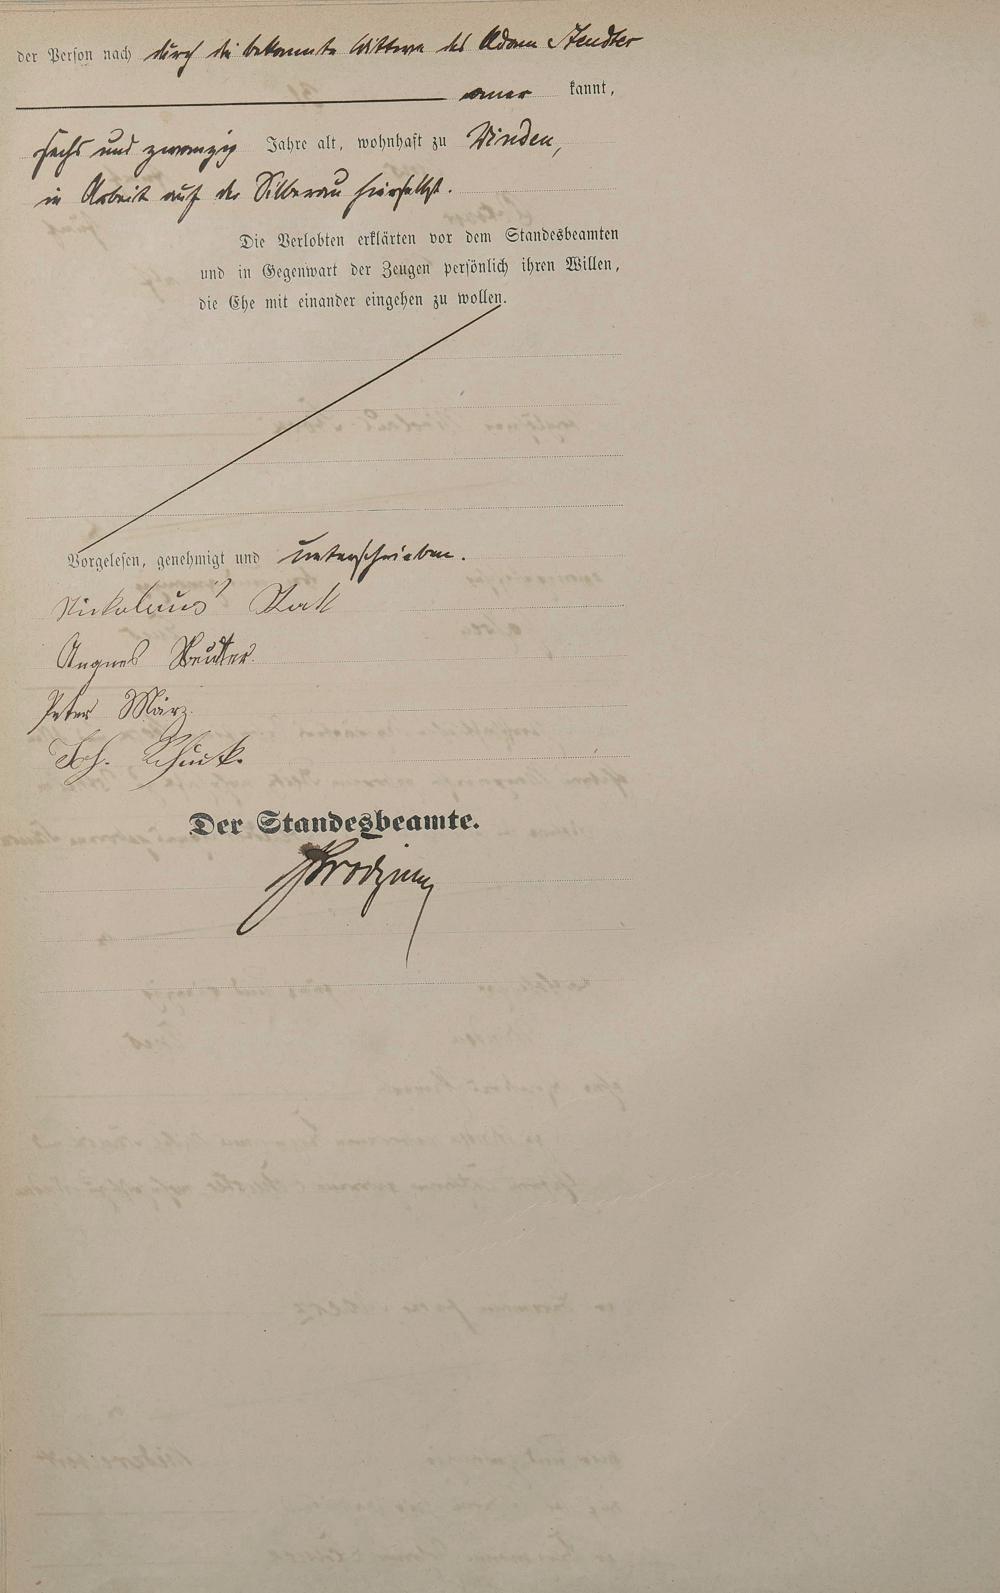 der Person nach durch die bekannte Wittwe des Adam Stendter
aner kannt,
sechs und zwanzig Jahre alt, wohnhaft zu Winden,
in Arbeit auf der Silberau hierselbst.
Die Verlobten erklärten vor dem Standesbeamten
und in Gegenwart der Zeugen persönlich ihren Willen,
die Ehe mit einander eingehen zu wollen.
Vorgelesen, genehmigt und unterschrieben.
Nickolaus
Angnes
Peter März
Joh. Schuck.
Der Standesbeamte.